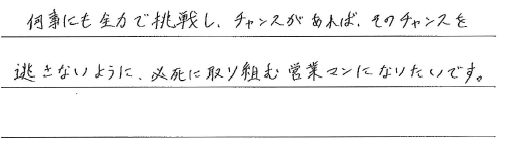 何事にも全力で挑戦し、チャンスがあれば、そのチャンスを
逃さないように、必死に取り組む営業マンになりたいです。